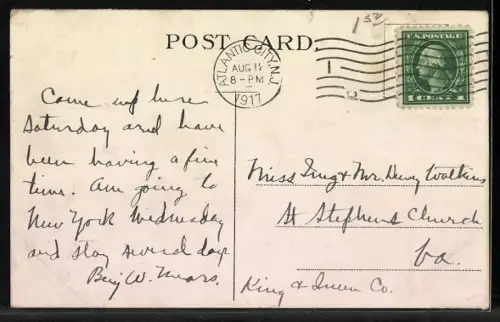 1 50
POST CARD.
ATLANTIC CITY, N.J.
AUG 14
8-PM
1917
U.S. POSTAGE
1 CENT 1
Came up here
Saturday and have
been having a fine
time. Am going to
New York Wednesday
and stay several days
Benj W. Mears.
Miss & Mr. Dewey Watkins
St Stephens Church
Va.
King & Queen Co.